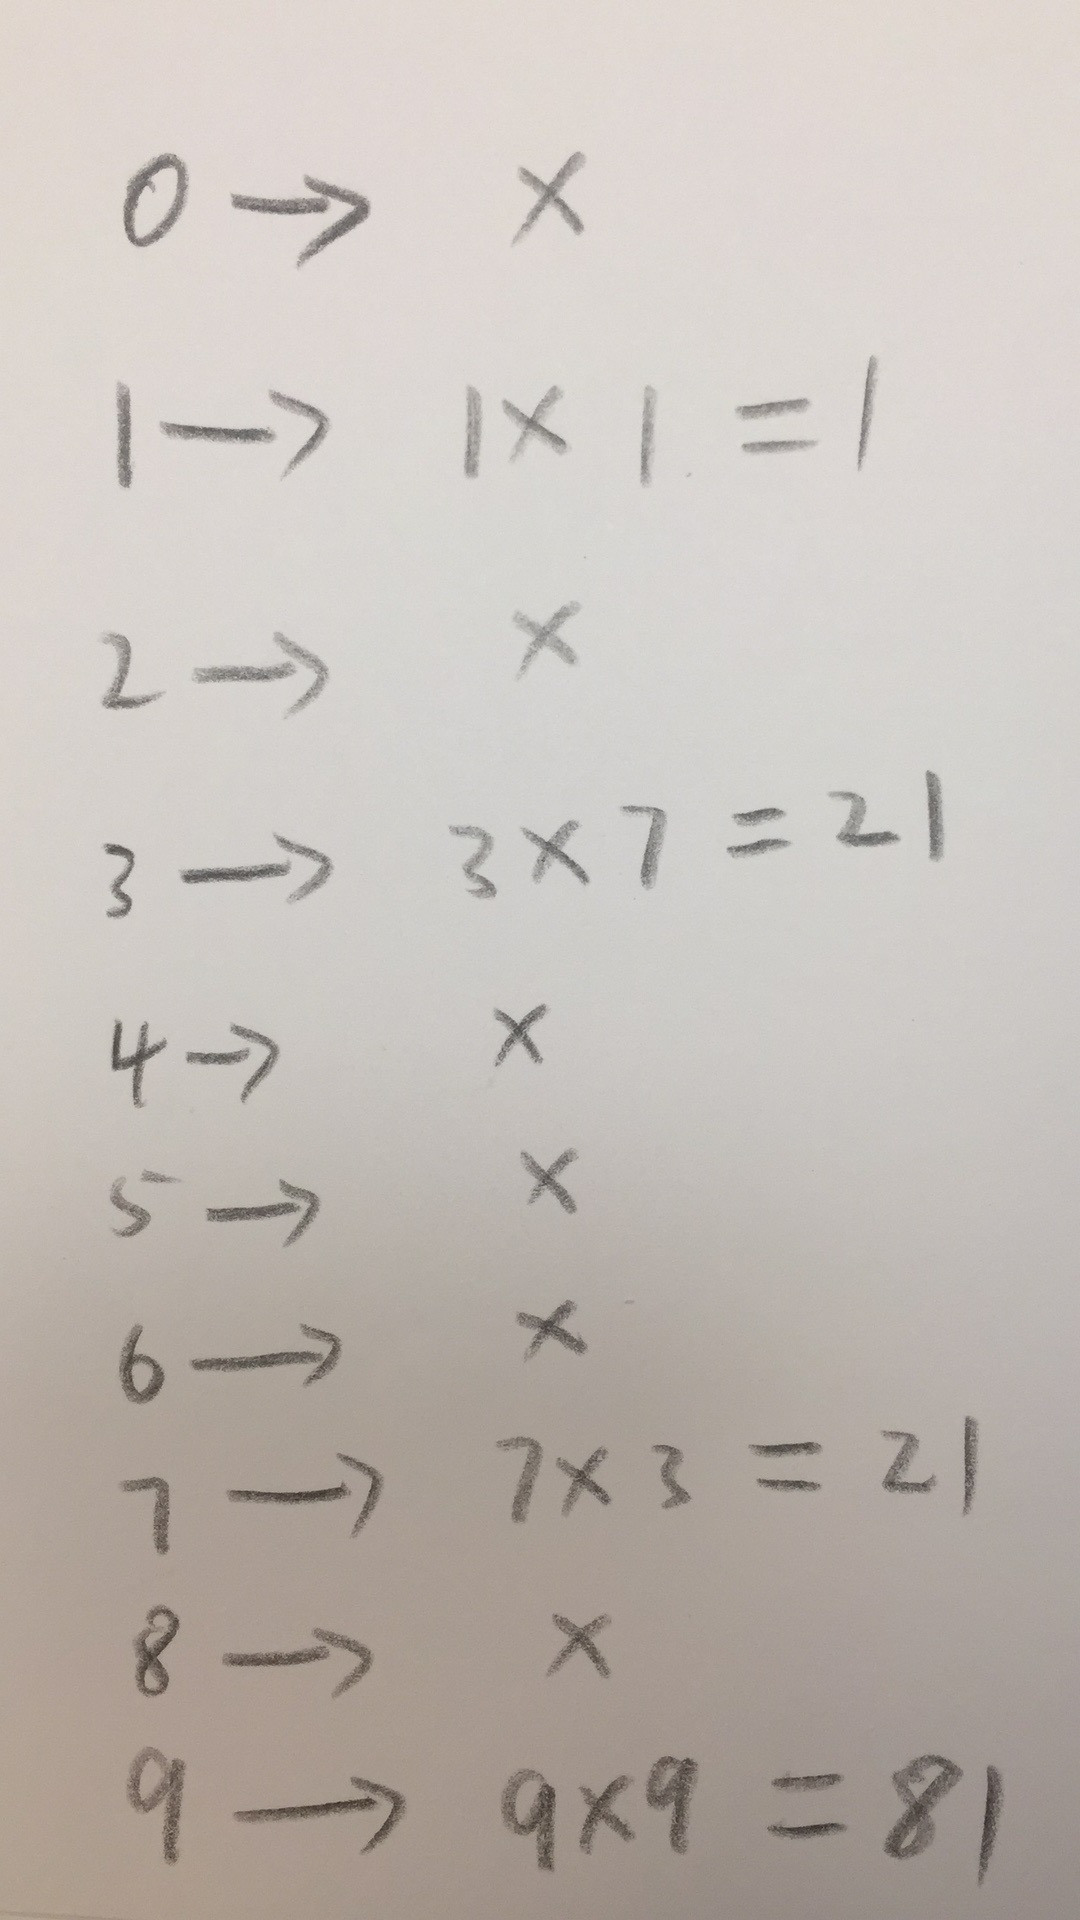 0 → ×
1 → 1 × 1 = 1
2 → ×
3 → 3 × 7 = 21
4 → ×
5 → ×
6 → ×
7 → 7 × 3 = 21
8 → ×
9 → 9 × 9 = 81